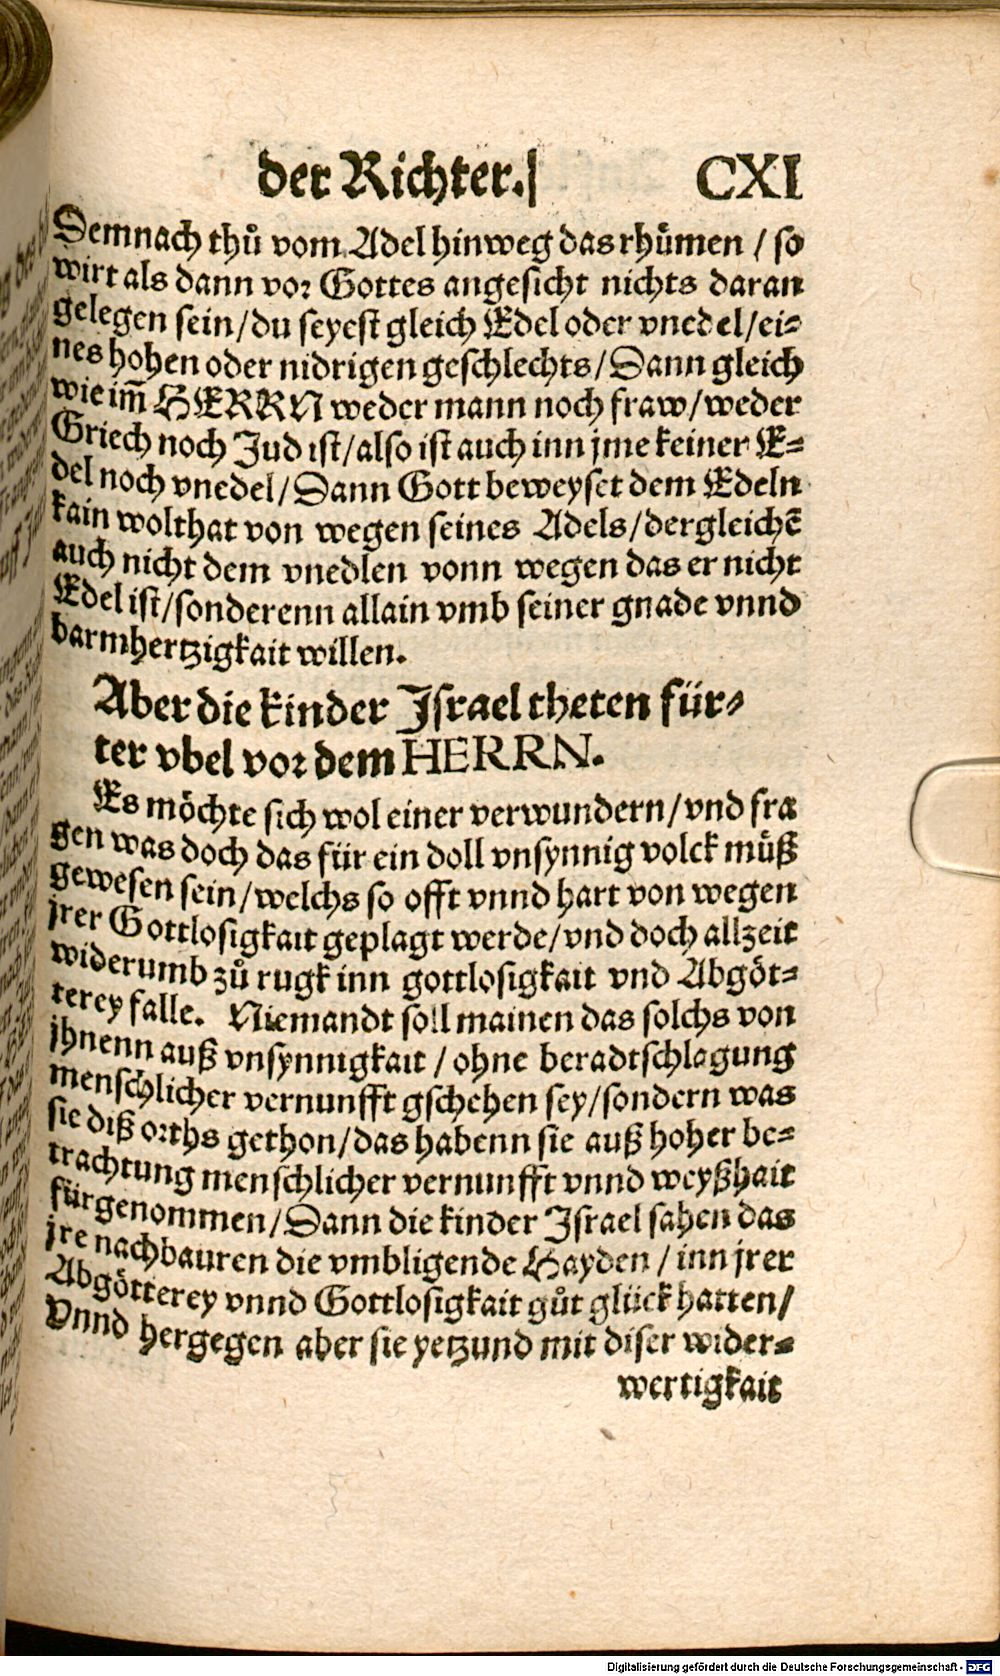 der Richter. CXI
Demnach thuͦ vom Adel hinweg das rhuͤmen / so
wirt als dann vor Gottes angesicht nichts daran
gelegen sein/du seyest gleich Edel oder vnedel/ei⸗
nes hohen oder nidrigen geschlechts/Dann gleich
wie im̃ HERRN weder mann noch fraw/weder
Griech noch Jud ist/also ist auch inn jme keiner E⸗
del noch vnedel/Dann Gott beweyset dem Edeln
kain wolthat von wegen seines Adels/dergleichẽ
auch nicht dem vnedlen vonn wegen das er nicht
Edel ist/sonderenn allain vmb seiner gnade vnnd
barmhertzigkait willen.
Aber die kinder Israel theten für⸗
ter vbel vor dem HERRN.
Es möchte sich wol einer verwundern/vnd fra
gen was doch das für ein doll vnsynnig volck muͤß
gewesen sein/welchs so offt vnnd hart von wegen
jrer Gottlosigkait geplagt werde/vnd doch allzeit
widerumb zuͦ rugk inn gottlosigkait vnd Abgöt⸗
terey falle. Niemandt soll mainen das solchs von
jhnenn auß vnsynnigkait / ohne beradtschlagung
menschlicher vernunfft gschehen sey/sondern was
sie diß orths gethon/das habenn sie auß hoher be⸗
trachtung menschlicher vernunfft vnnd weyßhait
fürgenommen/Dann die kinder Israel sahen das
jre nachbauren die vmbligende Hayden / inn jrer
Abgötterey vnnd Gottlosigkait guͦt glück hatten/
Vnnd hergegen aber sie yetzund mit diser wider⸗
wertigkait
Digitalisierung gefördert durch die Deutsche Forschungsgemeinschaft - DFG